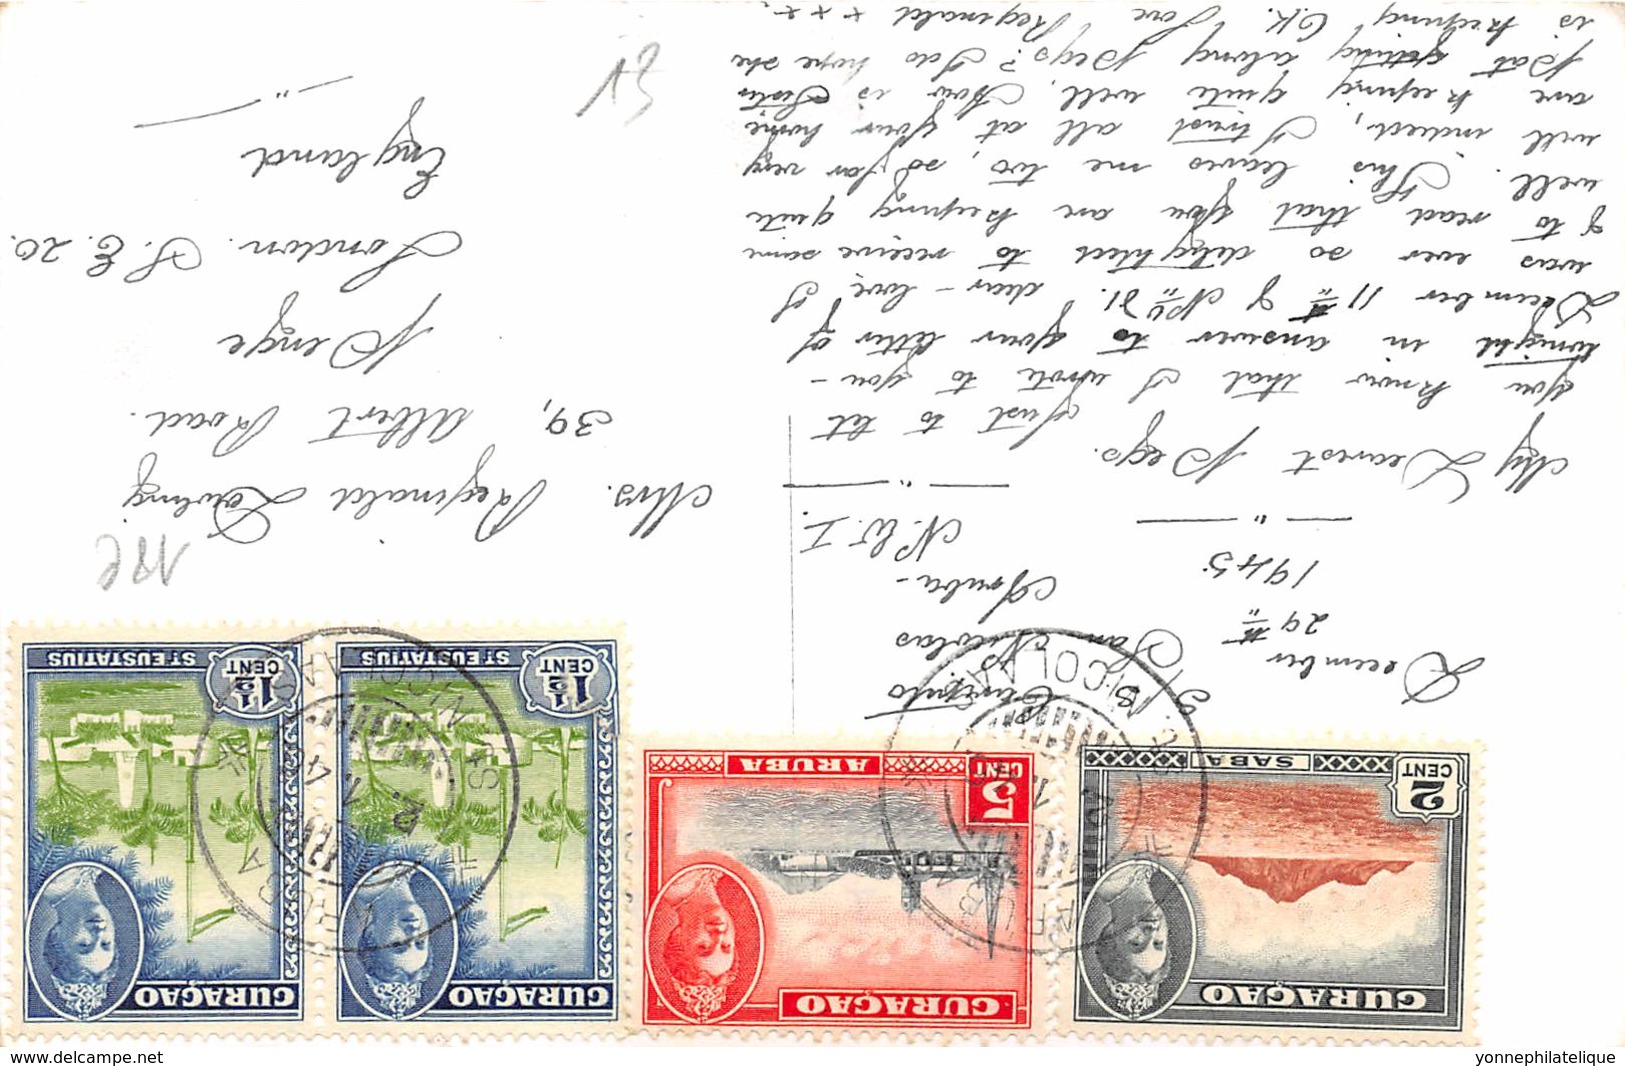 CURAÇAO
SABA
2 CENT
CURAÇAO
ARUBA
5 CENT
CURAÇAO
ST EUSTATIUS
1½ CENT
CURAÇAO
ST EUSTATIUS
1½ CENT
ST. NICOLAAS
ARUBA
December
29th
1945
San Nicolas
Aruba -
N.W.I.
My Dearest Pegs. Just to let
you know that I wrote to you -
tonight in answer to your letter of
December 11th of No 31. dear - love, I
was ever so delighted to receive same
& to read that you are keeping quite
well. This leaves me too, so far very
well indeed, I trust all at your home
are keeping quite well. How is Sister
Pat getting along Pegs? I do hope she
is keeping O.K. Love Reginald x x x.
Mrs. Reginald Dowling
39, Albert Road.
Penge
London. S.E.20.
England
delcampe.net
yonnephilatelique